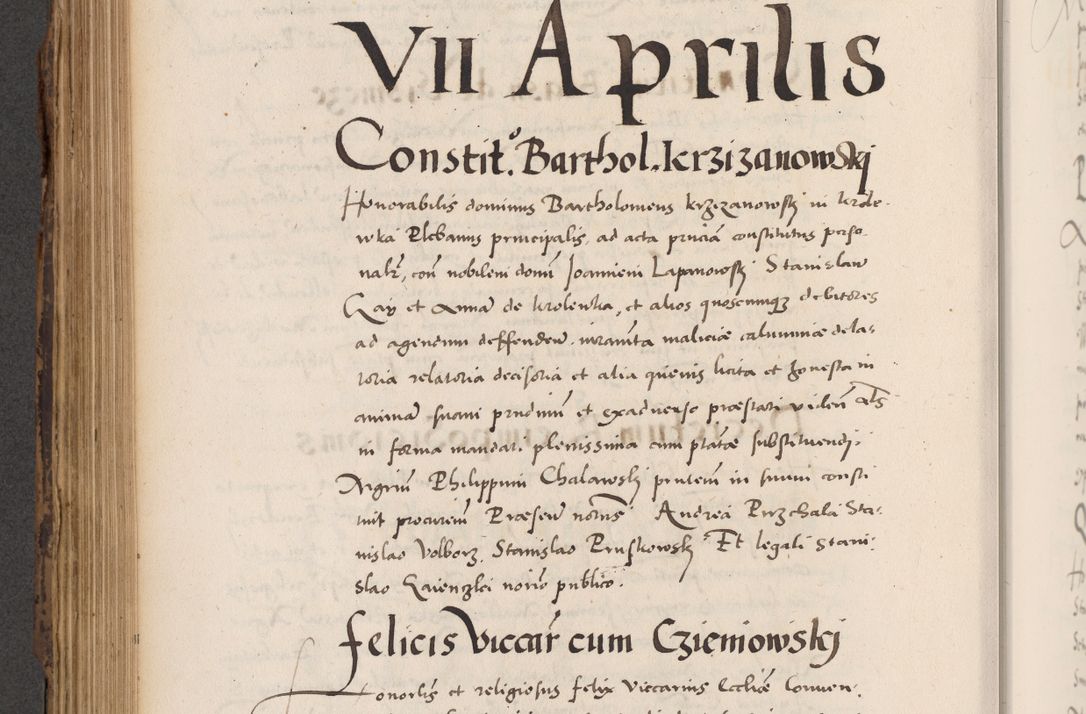 VII Aprilis
Constit.º Barthol. Krzizanowskj
Honorabilis dominus Bartholomeus Krzizanowskj in Krole-
wka Plebanus principalis, ad acta pnciã constitutus perso-
nalr, con nobilem domũ Joannem Lapanowskj Stanislaw
Gay et Annã de Krolewka, et alios quoscumqꝫ debitores
ad agendum deffendendum iurata maliciæ calumniæ dela-
toria relatoria decisoria et alia quevis licita et honesta in
animã suam prudum et exaduerso præstari viden als
in forma mandati plenissima cum ptate substituendj,
Mgrum Philippum Chalawskj pntem in suum consti
tuit procurem Præsen noms Andrea Przchala Sta-
nislao Volborz, Stanislao Pruskowskj Et legali Stani-
slao Gaienzkei norio publico.
Felicis Viccar cum Cziemiowskj
Honorlis et religiosus felix viccarius Eccliæ Conuen,